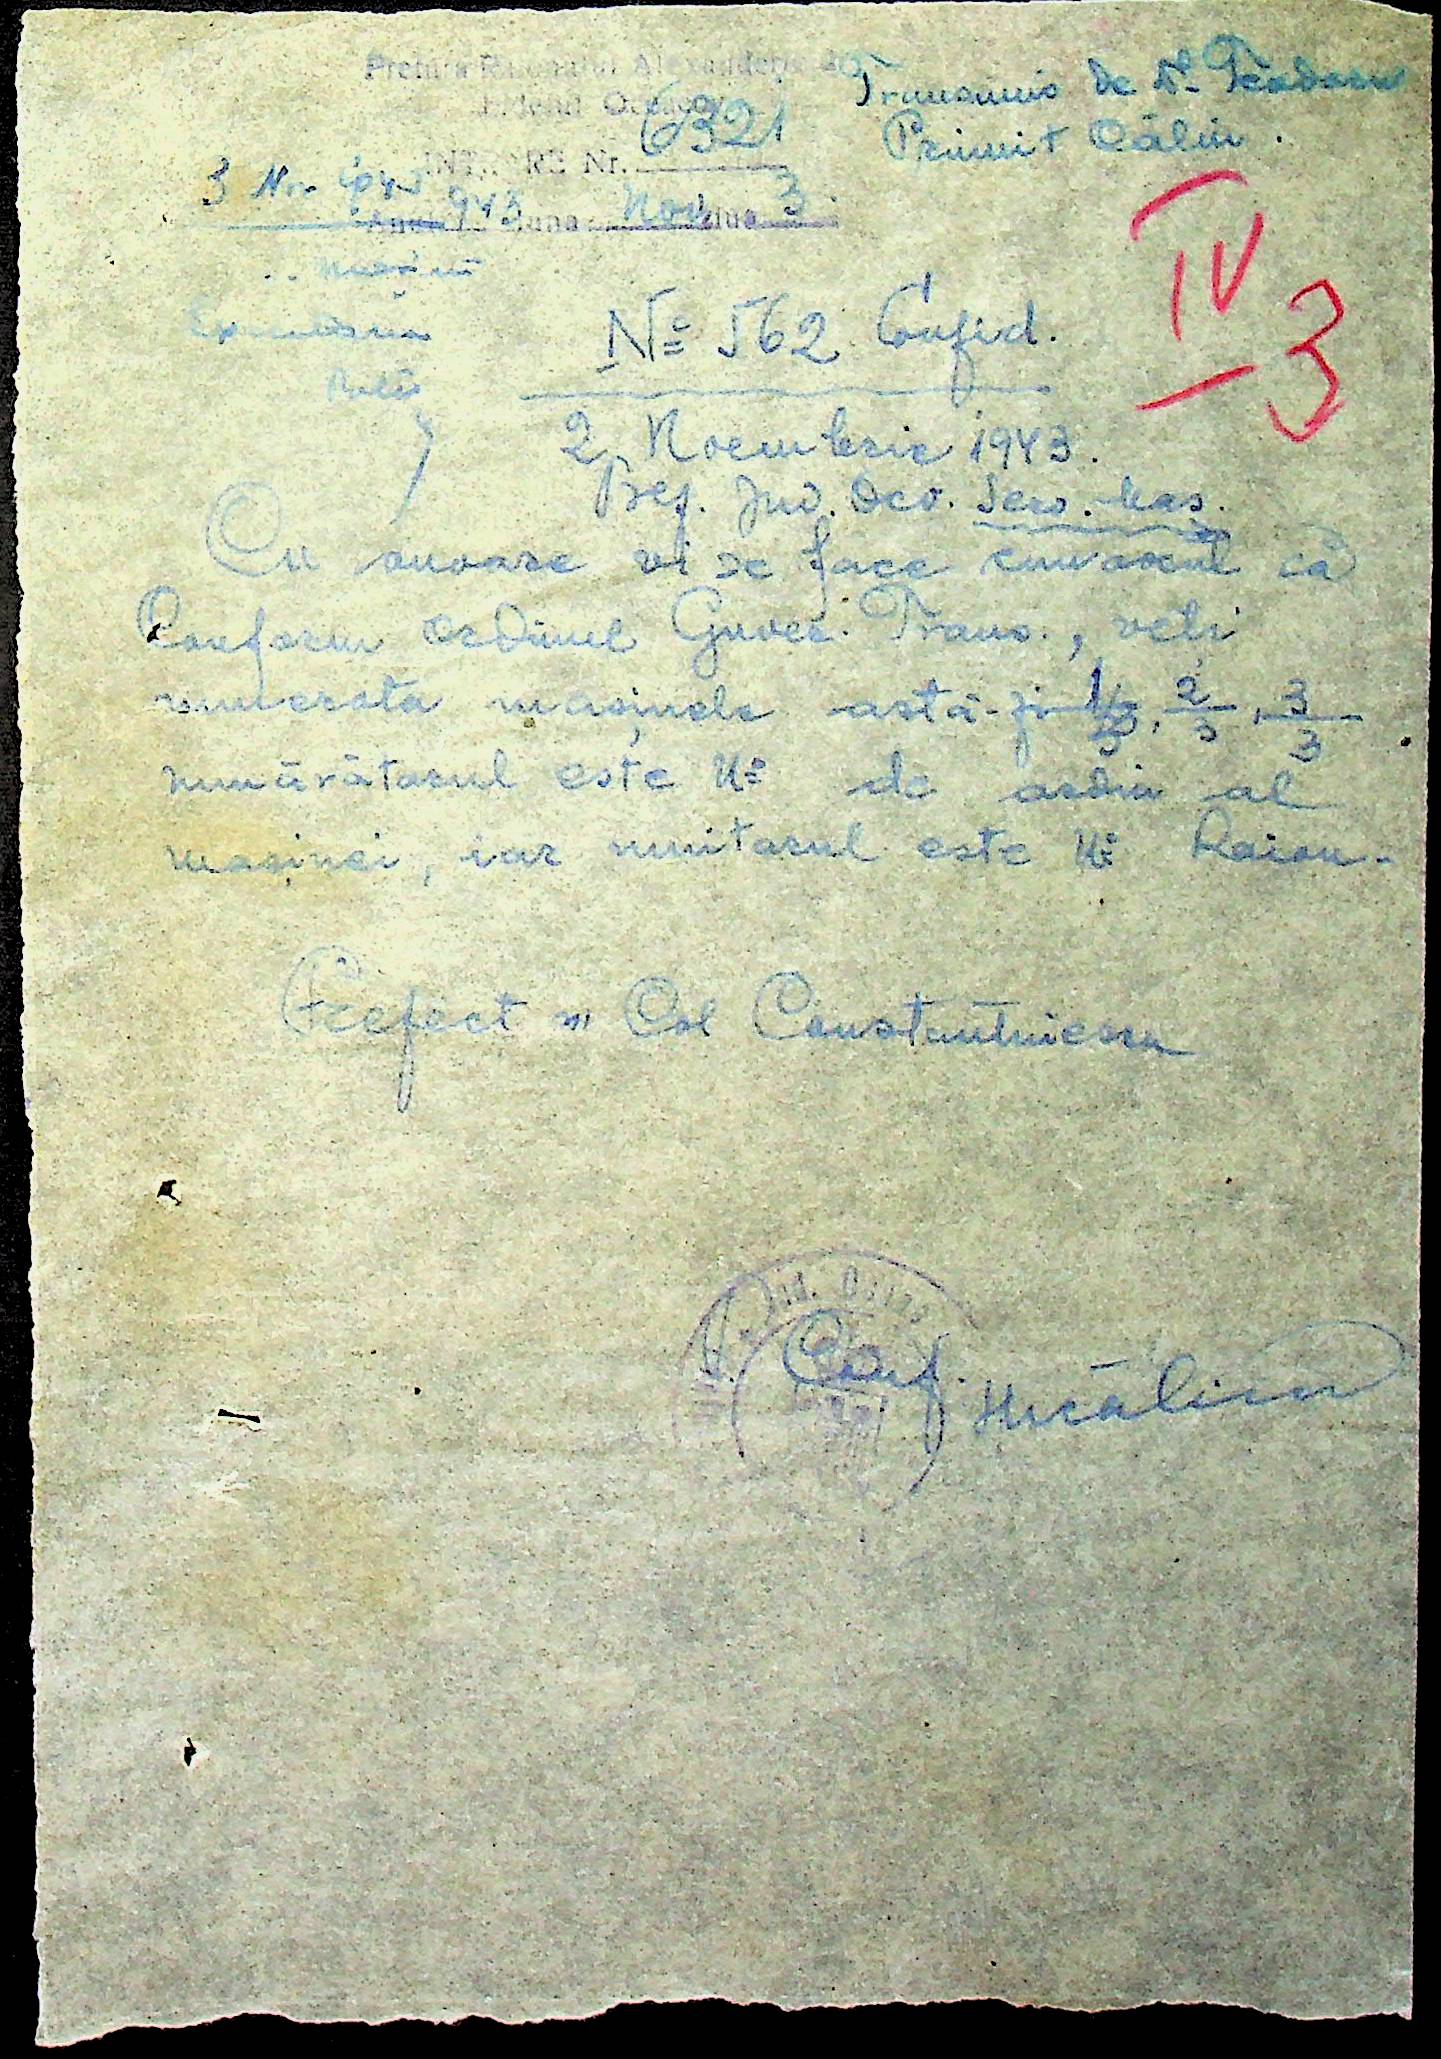 Pretura Raionului Alexanderfeld
Județul Oceacov
INTRARE Nr. 6321
Anul 943 Luna Nov Ziua 3
Transmis de Dl Teodorescu
Primit Călin.
3 Nov 943
IV
3
Nº 562 Confid.
2 Noembrie 1943.
Pref. Jud. Oceo. Serv. Mas.
Cu onoare vi se face cunoscut că
Conform ordinul Guver. Trans., veți
numerota mașinele astă-zi 1/3, 2/3, 3/3
numărătorul este Nº de ordin al
mașinei, iar numitorul este Nº Raion.
Prefect Col Constantinescu
Conf.